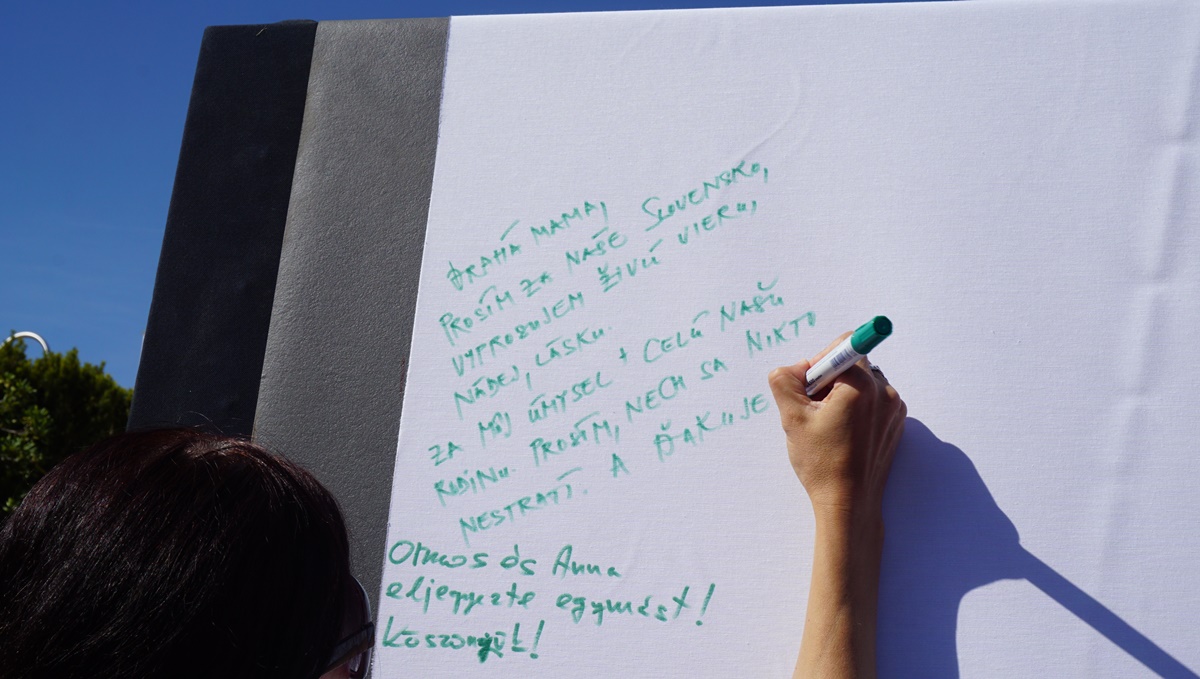 DRAHÁ MAMA,
PROSÍM ZA NAŠE SLOVENSKO,
VYPROSUJEM ŽIVÚ VIERU,
NÁDEJ, LÁSKU.
ZA MÔJ ÚMYSEL + CELÚ NAŠU
RODINU. PROSÍM, NECH SA NIKTO
NESTRATÍ. A ĎAKUJE
és Anna
eljegyezte egymást!
Köszönjük!